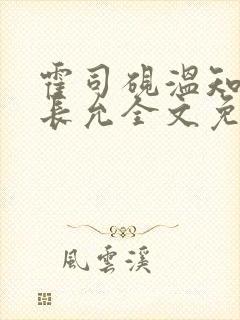 霍司砚温知
长允全文免
風雲溪